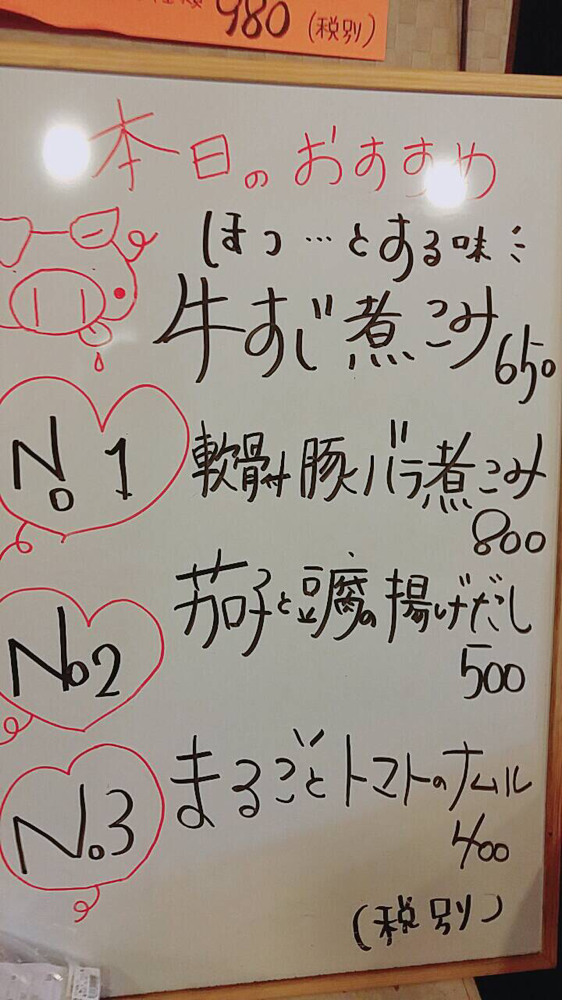 980 (税別)
本日のおすすめ
ほっ…とする味
牛すじ煮こみ
650
No1
軟骨付豚バラ煮こみ
800
No2
茄子と豆腐の揚げだし
500
No.3
まるごとトマトのナムル
400
(税別)